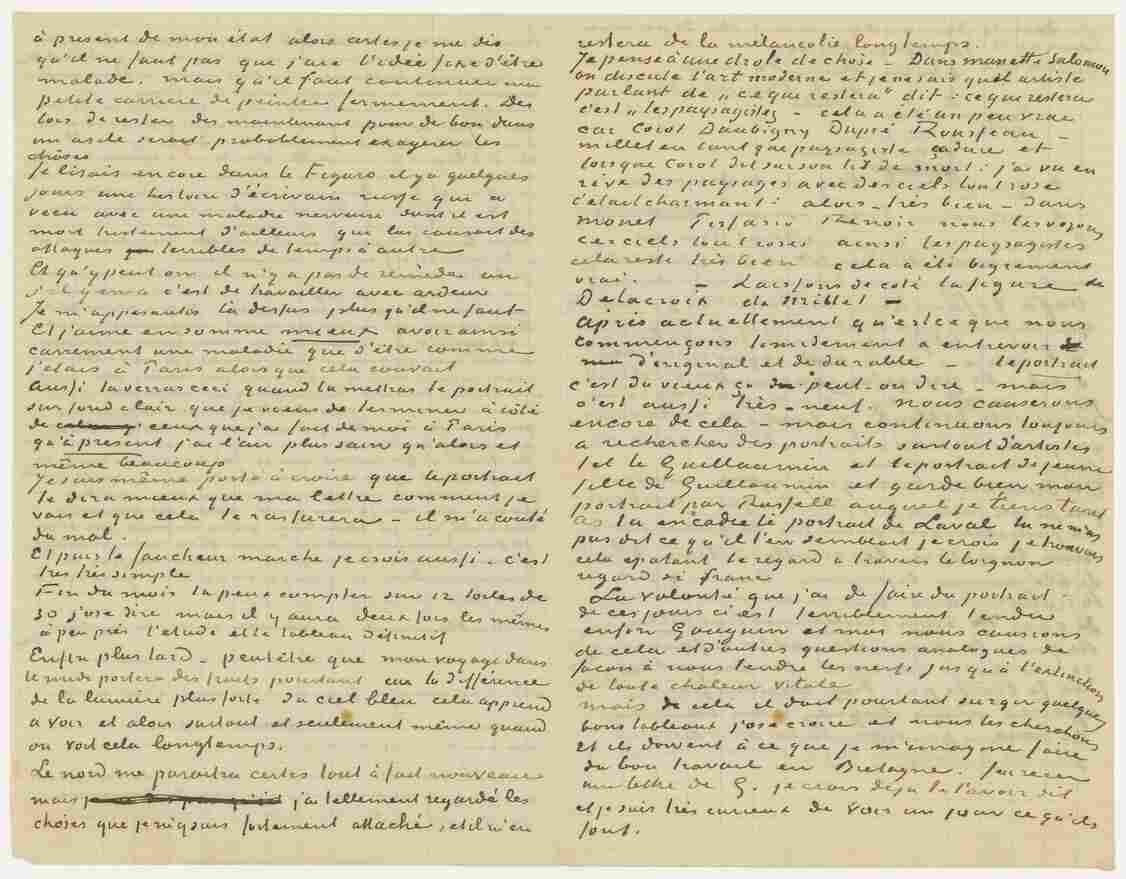 à present de mon état alors certes je me dis
qu'il ne faut pas que j'aie l'idée fixe d'être
malade. mais qu'il faut continuer ma
petite carrière de peintre fermement. Dès
lors de rester dès maintenant pour de bon dans
un asile serait probablement exagerer les
choses
Je lisais encore dans le Figaro il y a quelques
jours une histoire d'écrivain russe qui a
vecu avec une maladie nerveuse dont il est
mort tristement d'ailleurs qui lui causait des
attaques terribles de temps à autre
Et qu'y peut on, il n'y a pas de remède ou
s'il y en a c'est de travailler avec ardeur
Je m'appesantis là dessus plus qu'il ne faut
Et j'aime en somme mieux avoir ainsi
carrement une maladie que d'être comme
j'étais à Paris alors que cela couvait
Aussi tu verras ceci quand tu mettras le portrait
sur fond clair que je viens de terminer à côté
de ceux que j'ai fait de moi à Paris
qu'à present j'ai l'air plus sain qu'alors et
même beaucoup
Je suis même porté à croire que le portrait
te dira mieux que ma lettre comment je
vais et que cela te rassurera – il m'a couté
du mal.
Et puis le faucheur marche je crois aussi – c'est
très très simple
Fin du mois tu peux compter sur 12 toiles de
30 j'ose dire mais il y aura deux fois les mêmes
à peu près l'etude et le tableau définitif
Enfin plus tard – peutêtre que mon voyage dans
le midi portera des fruits pourtant car la différence
de la lumière plus forte du ciel bleu cela apprend
à voir et alors surtout et seulement même quand
on voit cela longtemps.
Le nord me paraitra certes tout à fait nouveau
mais j'ai tellement regardé les
choses que je m'y suis fortement attaché, et il m'en
restera de la mélancolie longtemps.
Je pense à une drole de chose – Dans Manette Salomon
on discute l'art moderne et je ne sais quel artiste
parlant de „ce qui restera" dit: ce qui restera
c'est „les paysagistes – cela a été un peu vrai
car Corot Daubigny Dupré Rousseau –
Millet en tant que paysagiste ça dure et
lorsque Corot dit sur son lit de mort: j'ai vu en
rêve des paysages avec des ciels tout rose
c'etait charmant: alors – très bien – dans
Monet Pissaro Renoir nous les voyons
ces ciels tout roses ainsi les paysagistes
cela reste très bien cela a été bigrement
vrai. – Laissons de coté la figure de
Delacroix de Millet –
après actuellement qu'est ce que nous
commençons timidement à entrevoir
d'original et de durable – le portrait
c'est du vieux ça peut-on dire – mais
c'est aussi très-neuf. nous causerons
encore de cela – mais continuons toujours
à rechercher des portraits surtout d'artistes
tel le Guillaumin et le portrait de jeune
fille de Guillaumin et garde bien mon
portrait par Russell auquel je tiens tant
As tu encadré le portrait de Laval tu ne m'as
pas dit ce qu'il t'en semblait je crois je trouvais
cela epatant le regard à travers le lorgnon
regard si franc
La volonté que j'ai de faire du portrait
de ces jours ci est terriblement tendue
enfin Gauguin et moi nous causions
de cela et d'autres questions analogues de
façon à nous tendre les nerfs jusqu'à l'extinction
de toute chaleur vitale
mais de cela il doit pourtant surgir quelques
bons tableaux j'ose croire et nous les cherchons
Et ils doivent à ce que je m'imagine faire
du bon travail en Bretagne. J'ai recu
une lettre de G. je crois déjà te l'avoir dit
et je suis très curieux de voir un jour ce qu'ils
font.